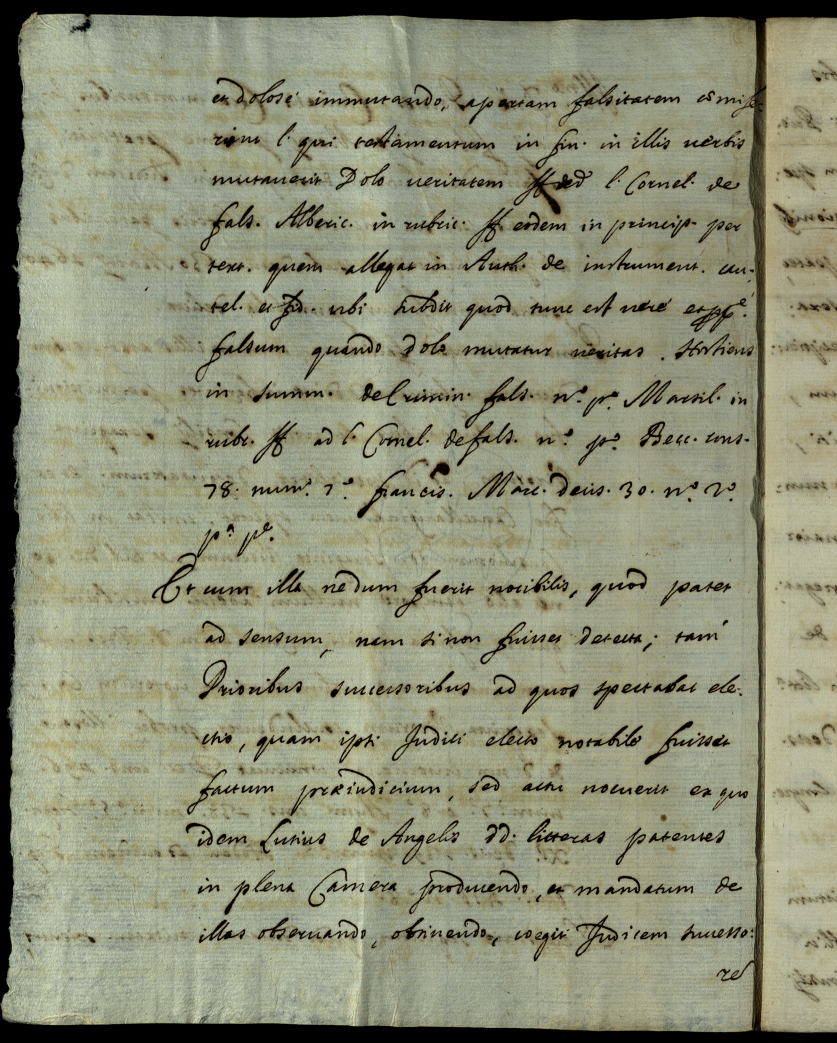 et dolosè immutando, apertam falsitatem comise-
rint l. qui testamentum in fin. in illis verbis
mutaverit Dolo veritatem ff l. Cornel. de
fals. Alberic. in rubric. ff eodem in princip. per
text. quem allegat in Auth. de instrument. cau-
tel. et fid. ubi subdit quod tunc est verè et
falsum quando dolo mutatur veritas.
in summ. de Crimin. fals. n.º p.º Marsil. in
rubr. ff ad l. Cornel. de fals. n.º p.º Becc. cons.
78. num.º 7.º francis. Marc. decis. 30. n.º 2.º
p.ª p.ª
Et cum illa nedum fuerit nocibilis, quod patet
ad sensum, nam si non fuisset detecta; tam
Prioribus successoribus ad quos spectabat ele-
ctio, quam ipsi Judici electo notabile fuisset
factum præiudicium, sed actu nocuerit ex quo
idem Lutius de Angelis dd. litteras patentes
in plena Camera producendo, et mandatum de
illas observando, obtinendo, coegit Judicem successo:
re